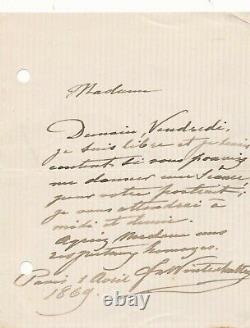 Madame
Demain, Vendredi,
je suis libre et je serais
content si vous pouviez
me donner une séance
pour votre portrait;
je vous attendrai à
midi et demie.
Agréez Madame mes
respectueux hommages.
Paris 1 Avril Fr Winterhalter
1869